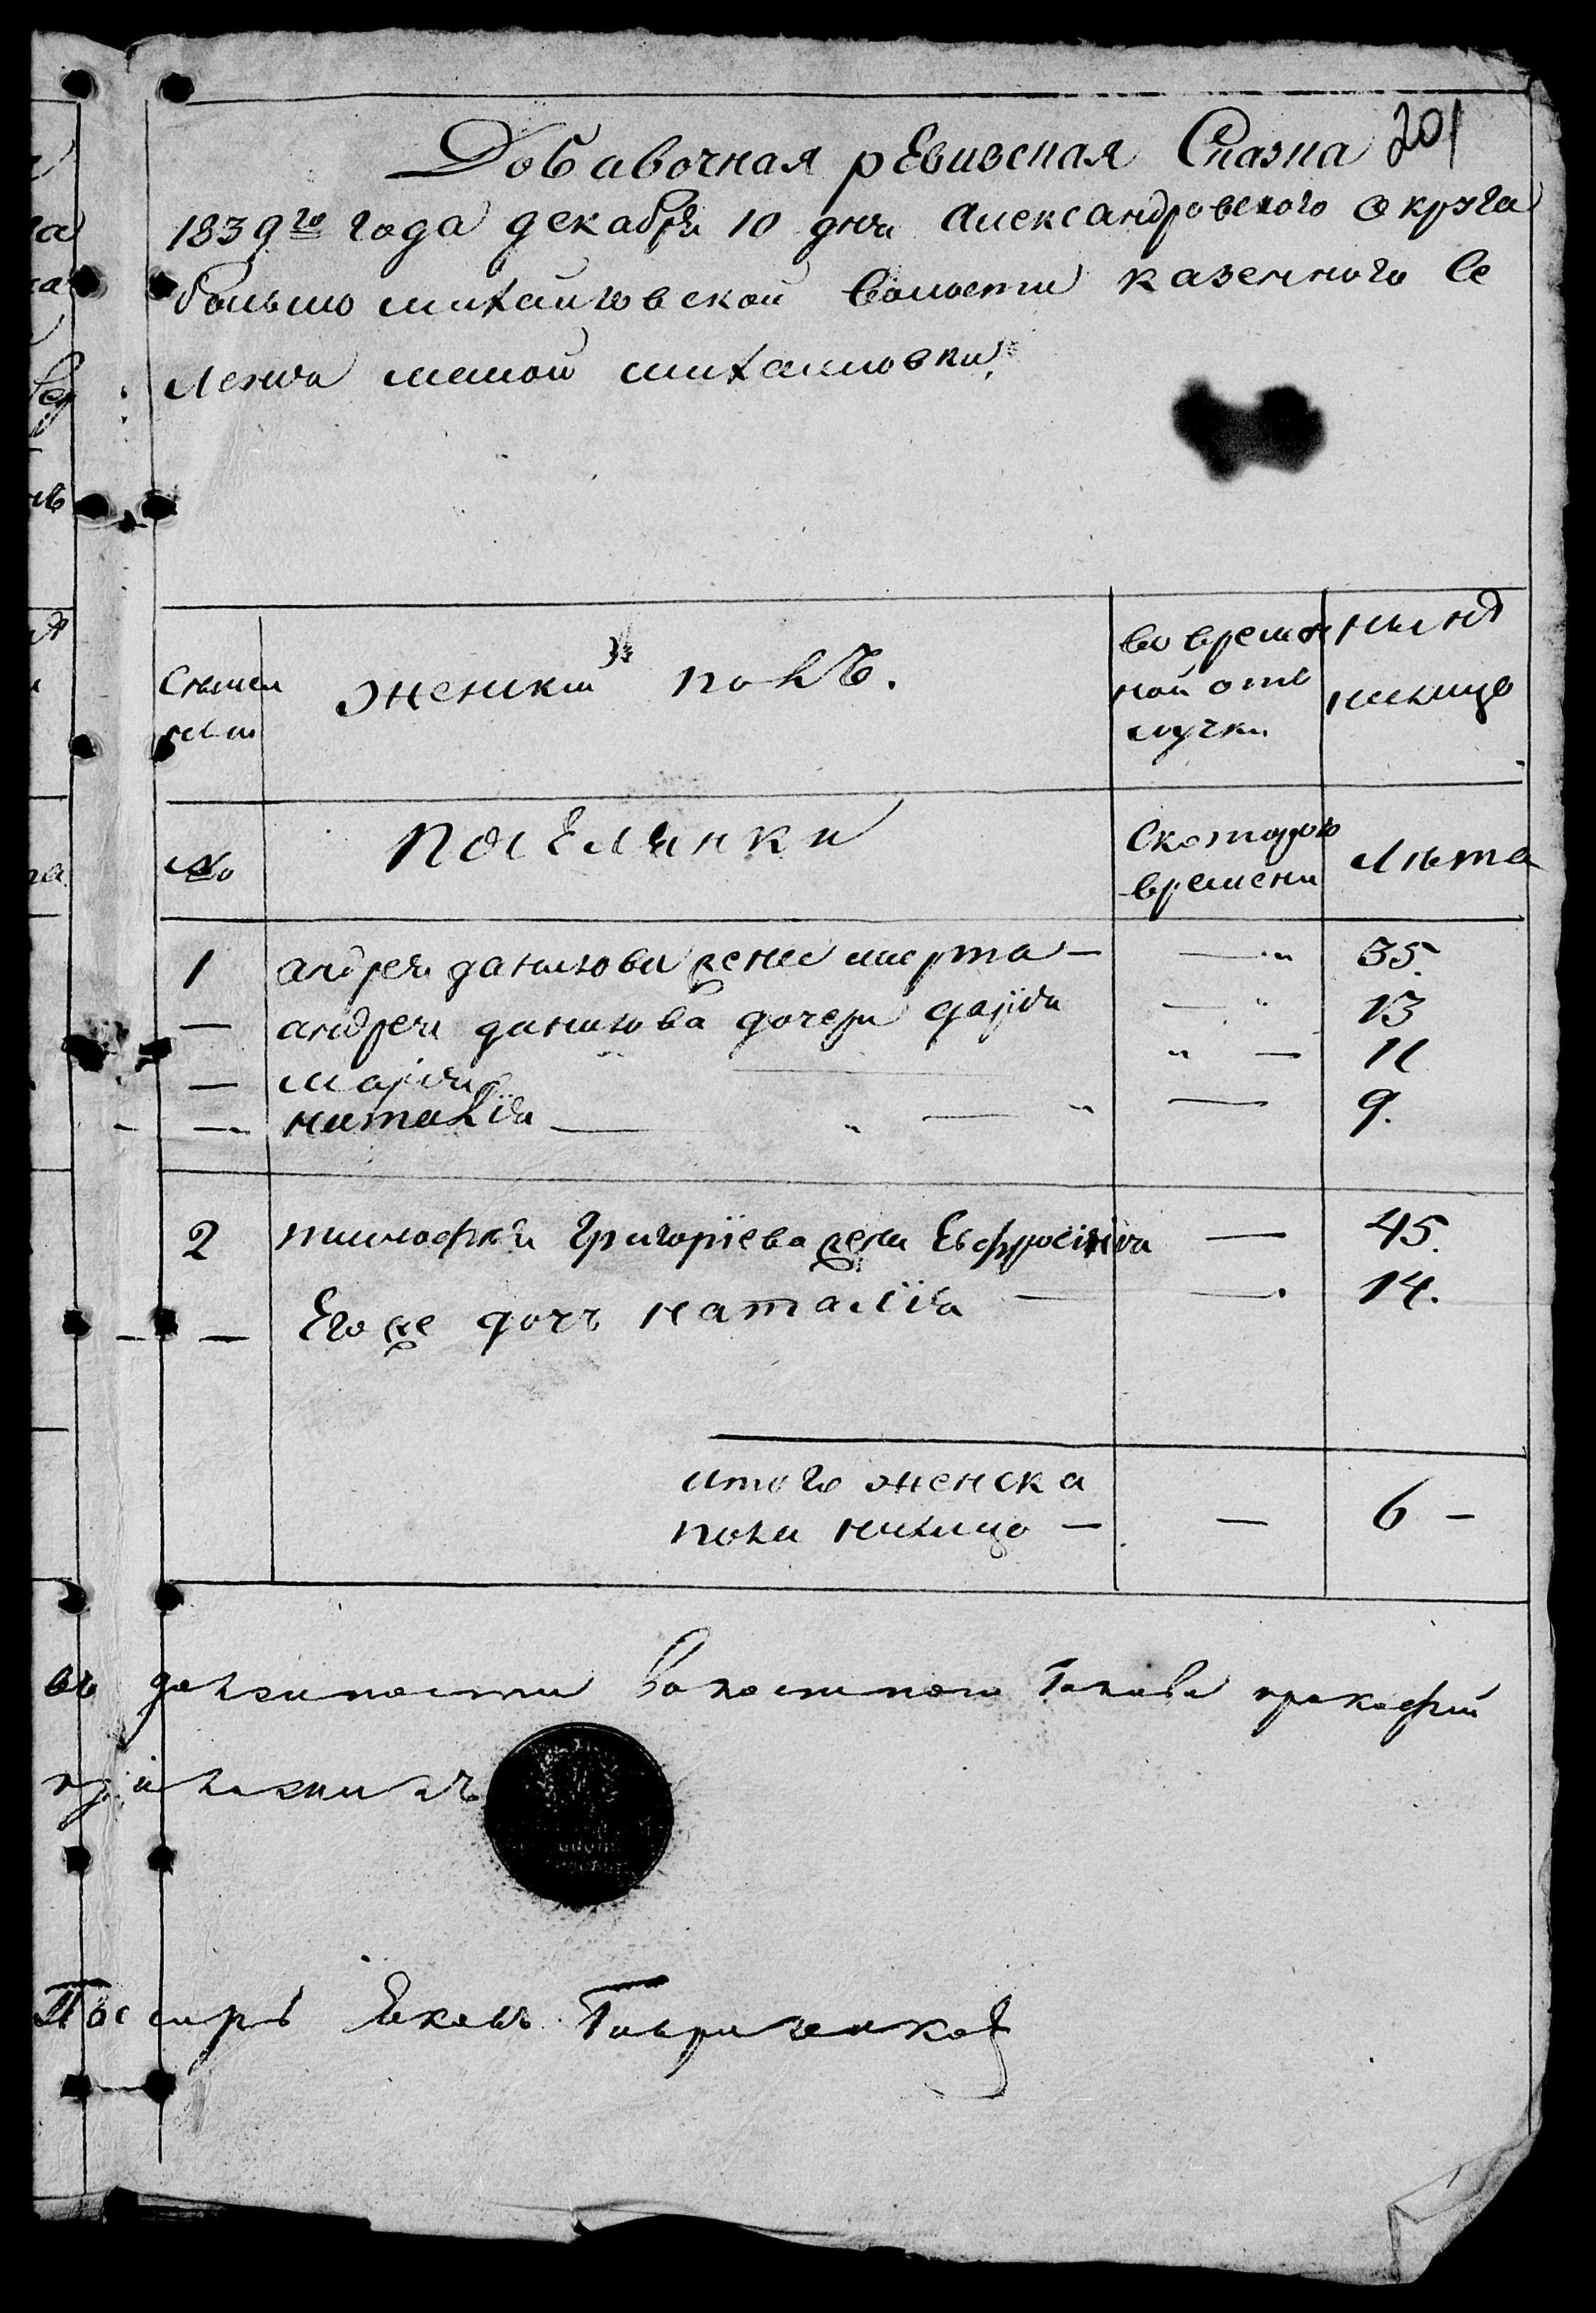 201
Добавочная рЕвизская Сказка
1839го года декабря 10 дня Александровского округа
большо михайловской волости казенного Се
Леныя малой михаиловки
Снимки
семьи
женский полъ.
во времен
ной отъ
лучки
ныне
налицо
№
ПосЕлянки
Скоторого
времени
Лѣта
1 андрея данилова жена марта — — " 35.
— андрея данилова дочери дарiя — " 13
— марiя " — 11
— наталiя — " — " — 9.
2 тимофея Григорiева жена Евфросiнiя — 45.
— Его же дочъ наталiя — — 14.
итого женска
пола налицо — — 6 —
въ должности Волостного Голова прокофий
Писарь Яковъ Гавриченков